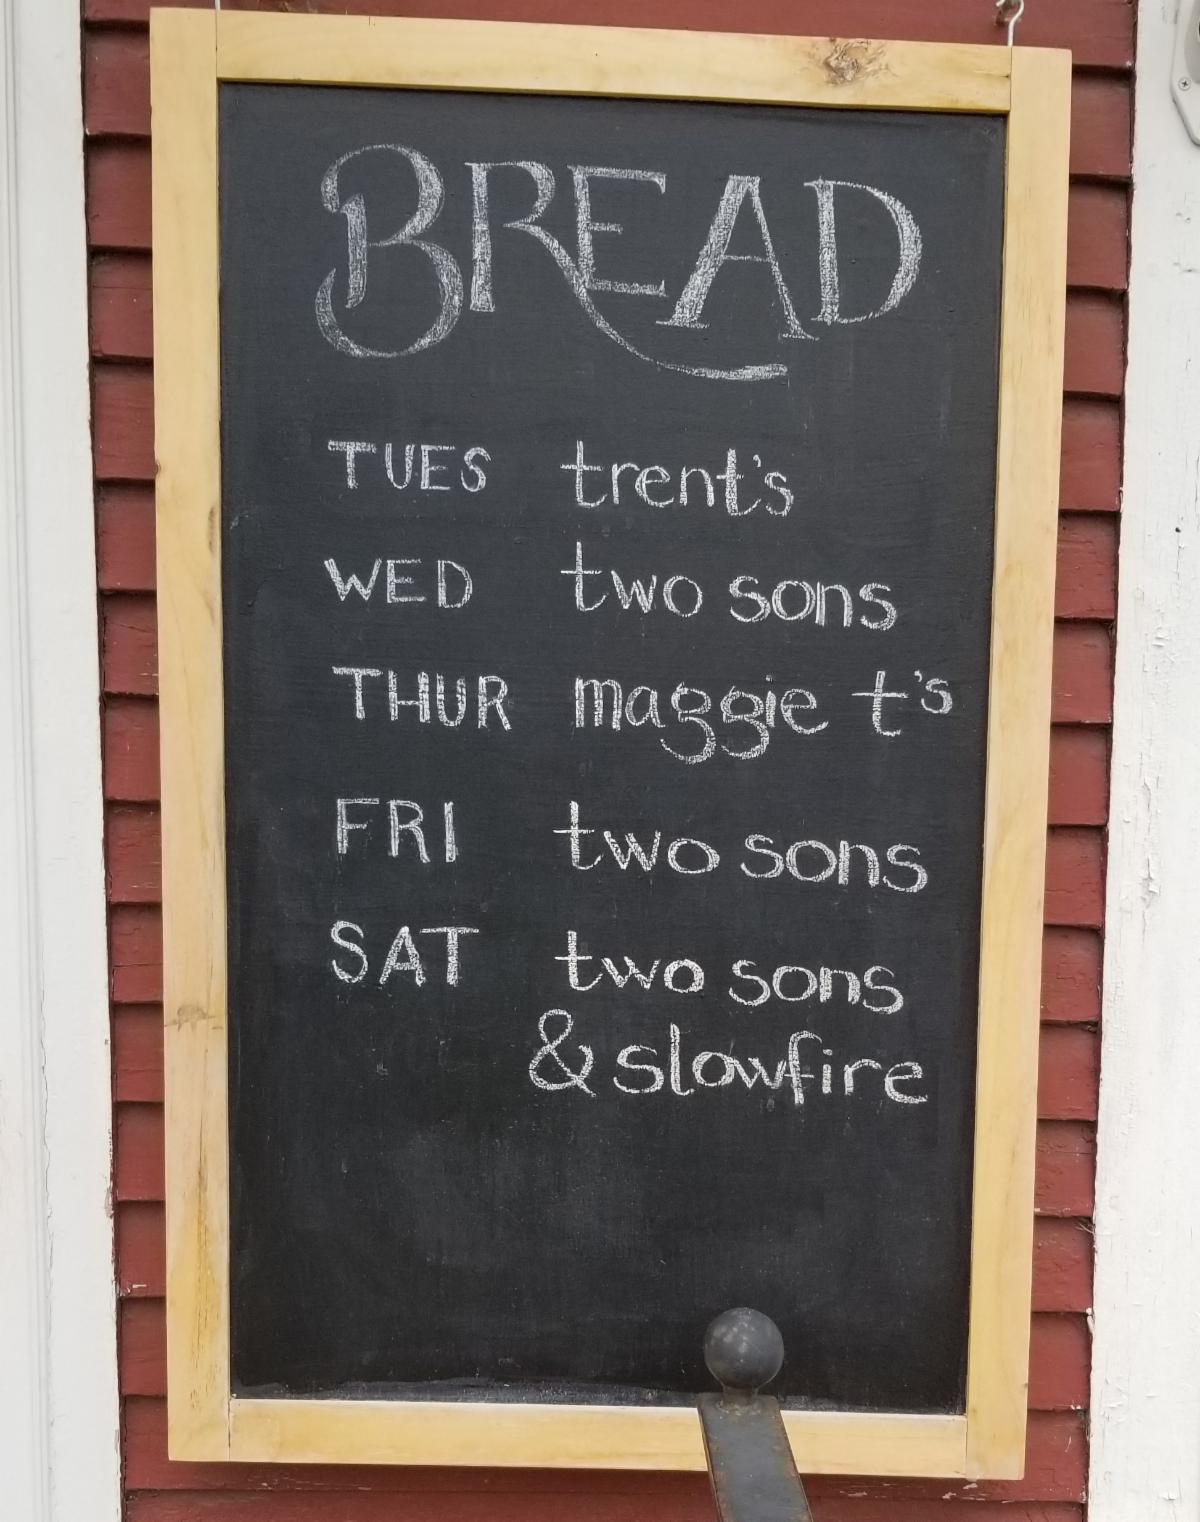 BREAD
TUES trent's
WED two sons
THUR maggie t's
FRI two sons
SAT two sons
& slowfire